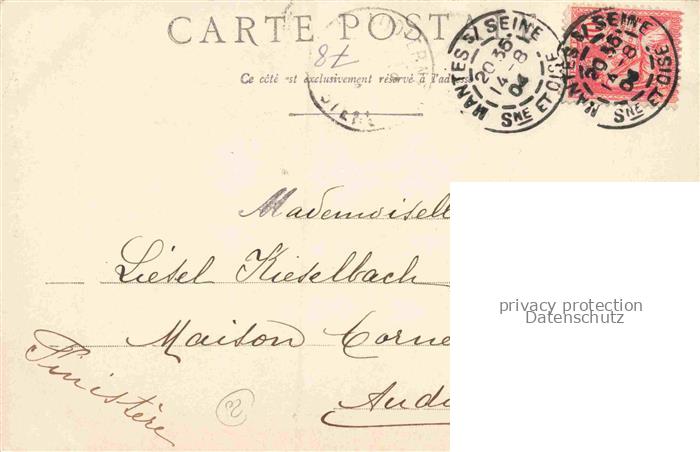 CARTE POSTA
Ce côté est exclusivement réservé à l'adresse
78
MANTES S/ SEINE
20 35
14 - 8
04
SNE ET OISE
MANTES S/ SEINE
20 35
14 - 8
04
SNE ET OISE
Mademoisell
Liesel Kieselbach
Maison Corne
Audi
Finistère
privacy protection
Datenschutz